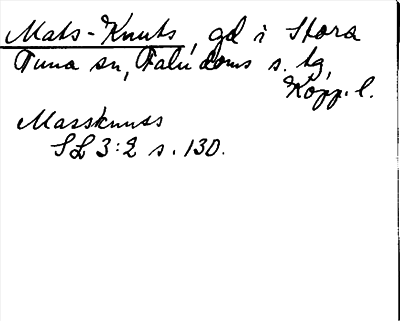 Mats-Knuts, gd i Stora
Tuna sn, Falu doms s. tg,
Kopp. l.
Massknuss
SL 3:2 s. 130.